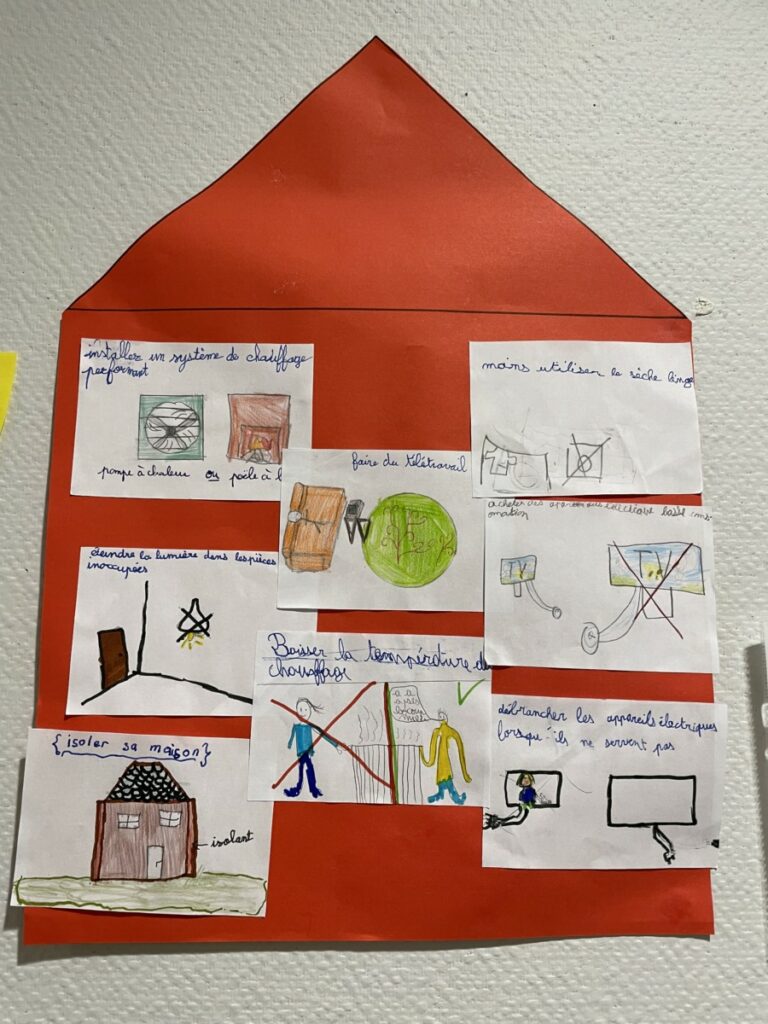 installer un système de chauffage
performant
pompe à chaleur ou poêle à
moins utiliser le sèche linge
faire du télétravail
acheter des
TV
TV
éteindre la lumière dans les pièces
inoccupées
Baisser la température du
chauffage
débrancher les appareils électriques
lorsqu'ils ne servent pas
{isoler sa maison}
isolant